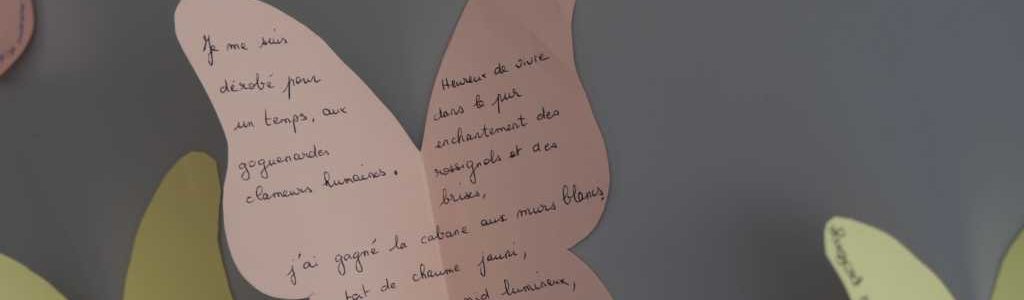 Je me suis
dérobé pour
un temps, aux
goguenardes
clameurs humaines.
Heureux de vivre
dans le pur
enchantement des
rossignols et des
brises,
j'ai gagné la cabane aux murs blancs,
toit de chaume jauni,
nid lumineux,